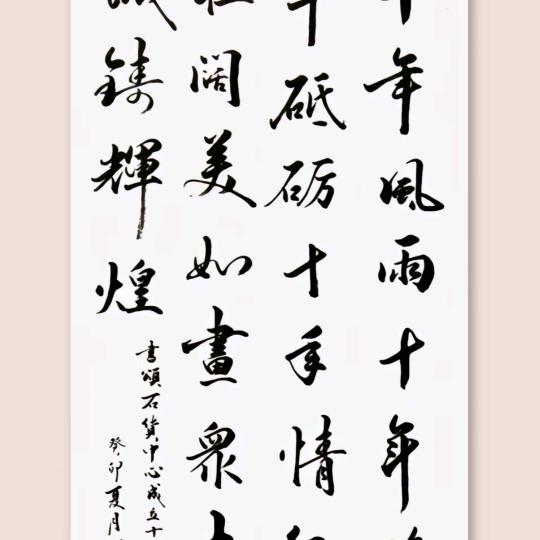 年風雨十年
砥砺十年情
阔美如畫眾
鑄輝煌
書頌石貨中心成立十
癸卯夏月